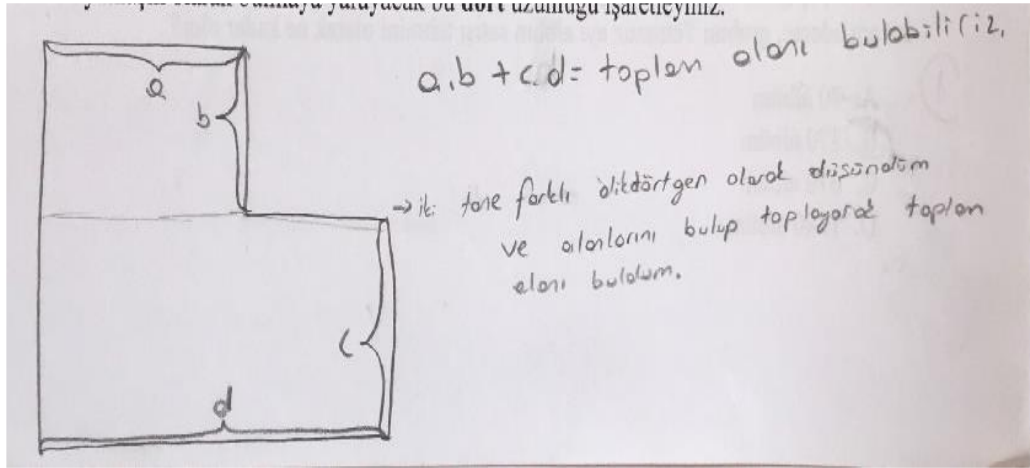 yarayacak bu dört uzunluğu işaretleyiniz.
a.b + c.d = toplam alanı bulabiliriz.
a
b
→ iki tane farklı dikdörtgen olarak düşündüm
ve alanlarını bulup toplayarak toplam
alanı buldum.
c
d